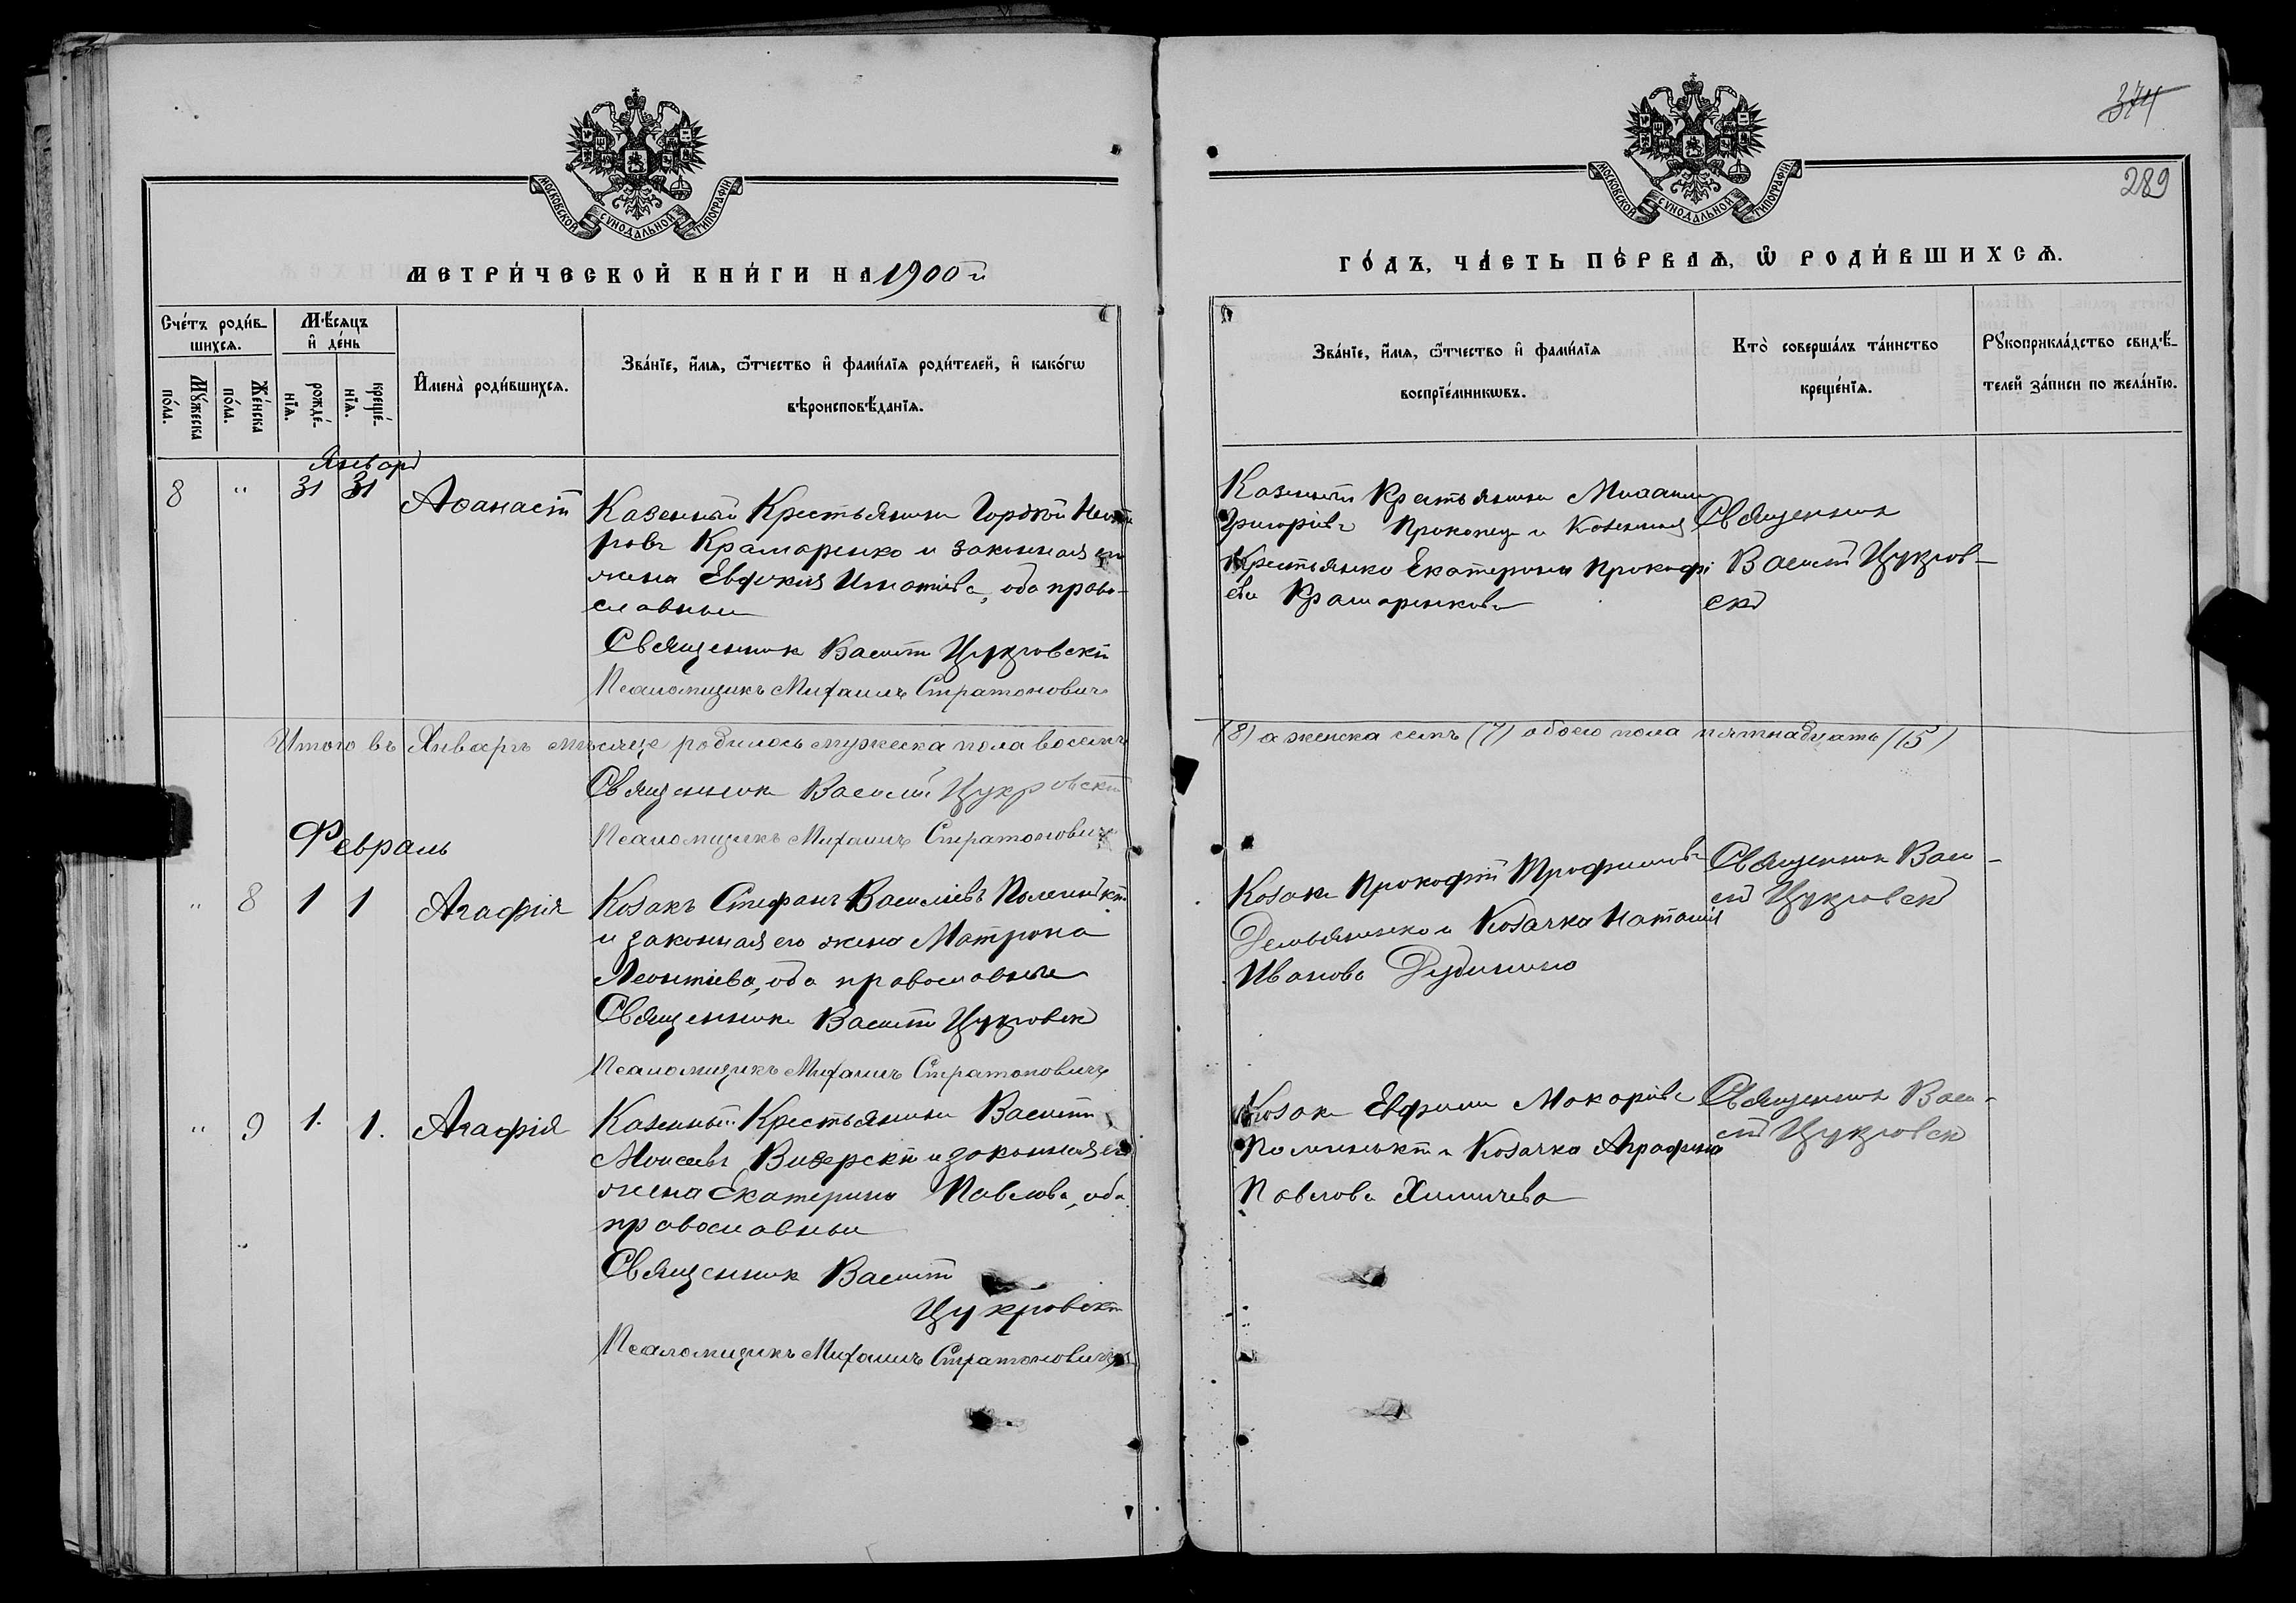 374
289
МОСКОВСКОЙ СѴНОДАЛЬНОЙ ТИПОГРАФІИ
МЕТРИ́ЧЕСКОЙ КНИ́ГИ НА 1900й
Сче́тъ роди́в-
шихсѧ.
Мѹ́жеска
по́ла.
Же́нска
по́ла.
Мѣ́сѧцъ
и҆ де́нь
рожде́-
нїѧ.
креще́-
нїѧ.
И҆мена̀ роди́вшихсѧ.
Зва́нїе, и҆́мѧ, ѻ҆́тчество и҆ фами́лїѧ роди́телей, и҆ како́гѡ
вѣроисповѣ́данїѧ.
Январь
8 " 31 31 Аѳанасій
Казенный Крестьянинъ Гордѣй
ровъ Крамаренко и законная его
жена Евдокія Игнатіева, оба право-
славные
Священникъ Василій Цукровскій
Псаломщикъ Михаилъ Стратоновичъ
Итого въ Январѣ мѣсяцѣ родилось мужеска пола восемь
Священникъ Василій Цукровскій
Февраль
Псаломщикъ Михаилъ Стратоновичъ
" 8 1 1 Агафія
Козакъ Стефанъ Васильевъ
и законная его жена Матрона
Леонтіева, оба православные
Священникъ Василій Цукровск
Псаломщикъ Михаилъ Стратоновичъ
" 9 1. 1. Агафія
Казенный Крестьянинъ Василій
Моисеевъ и законная его
жена Екатерина Павлова, оба
православные
Священникъ Василій
Цукровскій
Псаломщикъ Михаилъ Стратоновичъ
МОСКОВСКОЙ СѴНОДАЛЬНОЙ ТИПОГРАФІИ
ГО́ДЪ, ЧА́СТЬ ПЕ́РВАѦ, Ѡ҆ РОДИ́ВШИХСѦ.
Зва́нїе, и҆́мѧ, ѻ҆́тчество и҆ фами́лїѧ
воспрїе́мникѡвъ.
Кто̀ соверша́лъ та́инство
креще́нїѧ.
Рѹкоприкла́дство свидѣ́-
телей за́писи по жела́нїю.
Казенный Крестьянинъ Михаилъ
Григоріевъ Прокопец и Казенная
Крестьянка Екатерина Прокофі
ева Крамаренкова
Священникъ
Василій Цукров-
скій
(8) а женска семь (7) обоего пола пятнадцать (15)
Козакъ Прокофій Трофимовъ
и Козачка Наталія
Иванова
Священникъ Васи-
лій Цукровскій
Козакъ Евфимій Макаріевъ
и Козачка Аграфена
Павлова Химичева
Священникъ Васи-
лій Цукровск